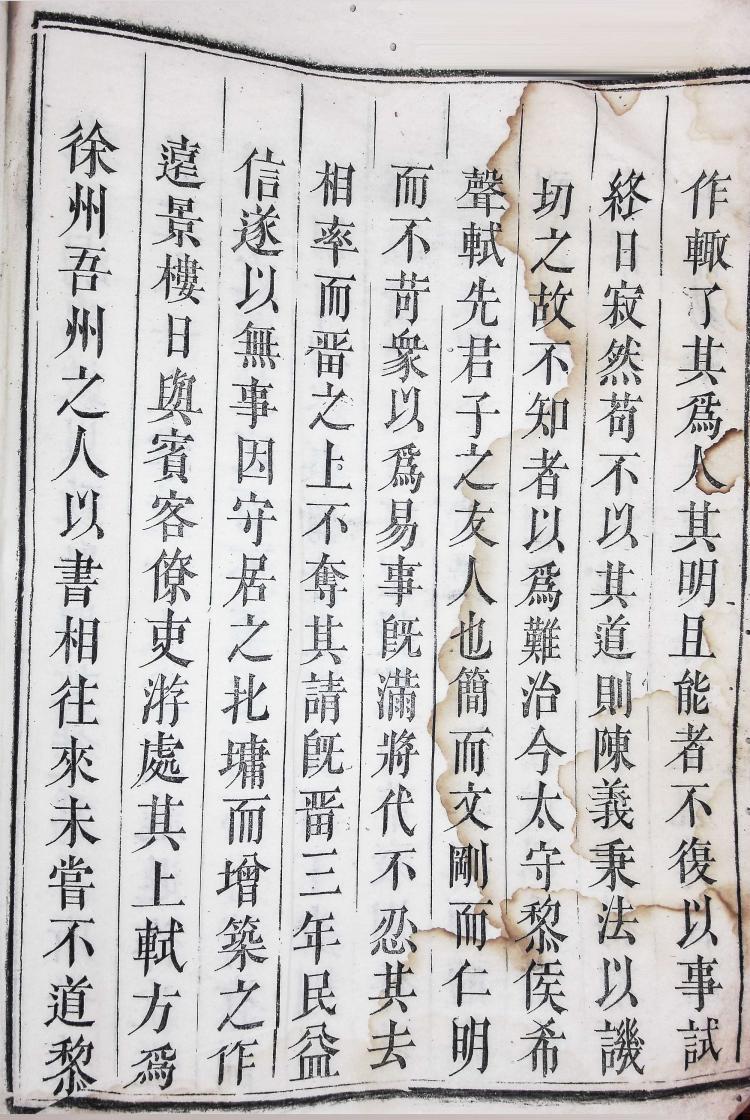 作輒了其爲人其明且能者不復以事試
終日寂然苟不以其道則陳義秉法以譏
切之故不知者以爲難治今太守黎侯希
聲軾先君子之友人也簡而文剛而仁明
而不苛衆以爲易事旣滿將代不忍其去
相率而畱之上不奪其請旣畱三年民益
信遂以無事因守居之北墉而增築之作
遠景樓日與賓客僚吏游處其上軾方爲
徐州吾州之人以書相往來未嘗不道黎